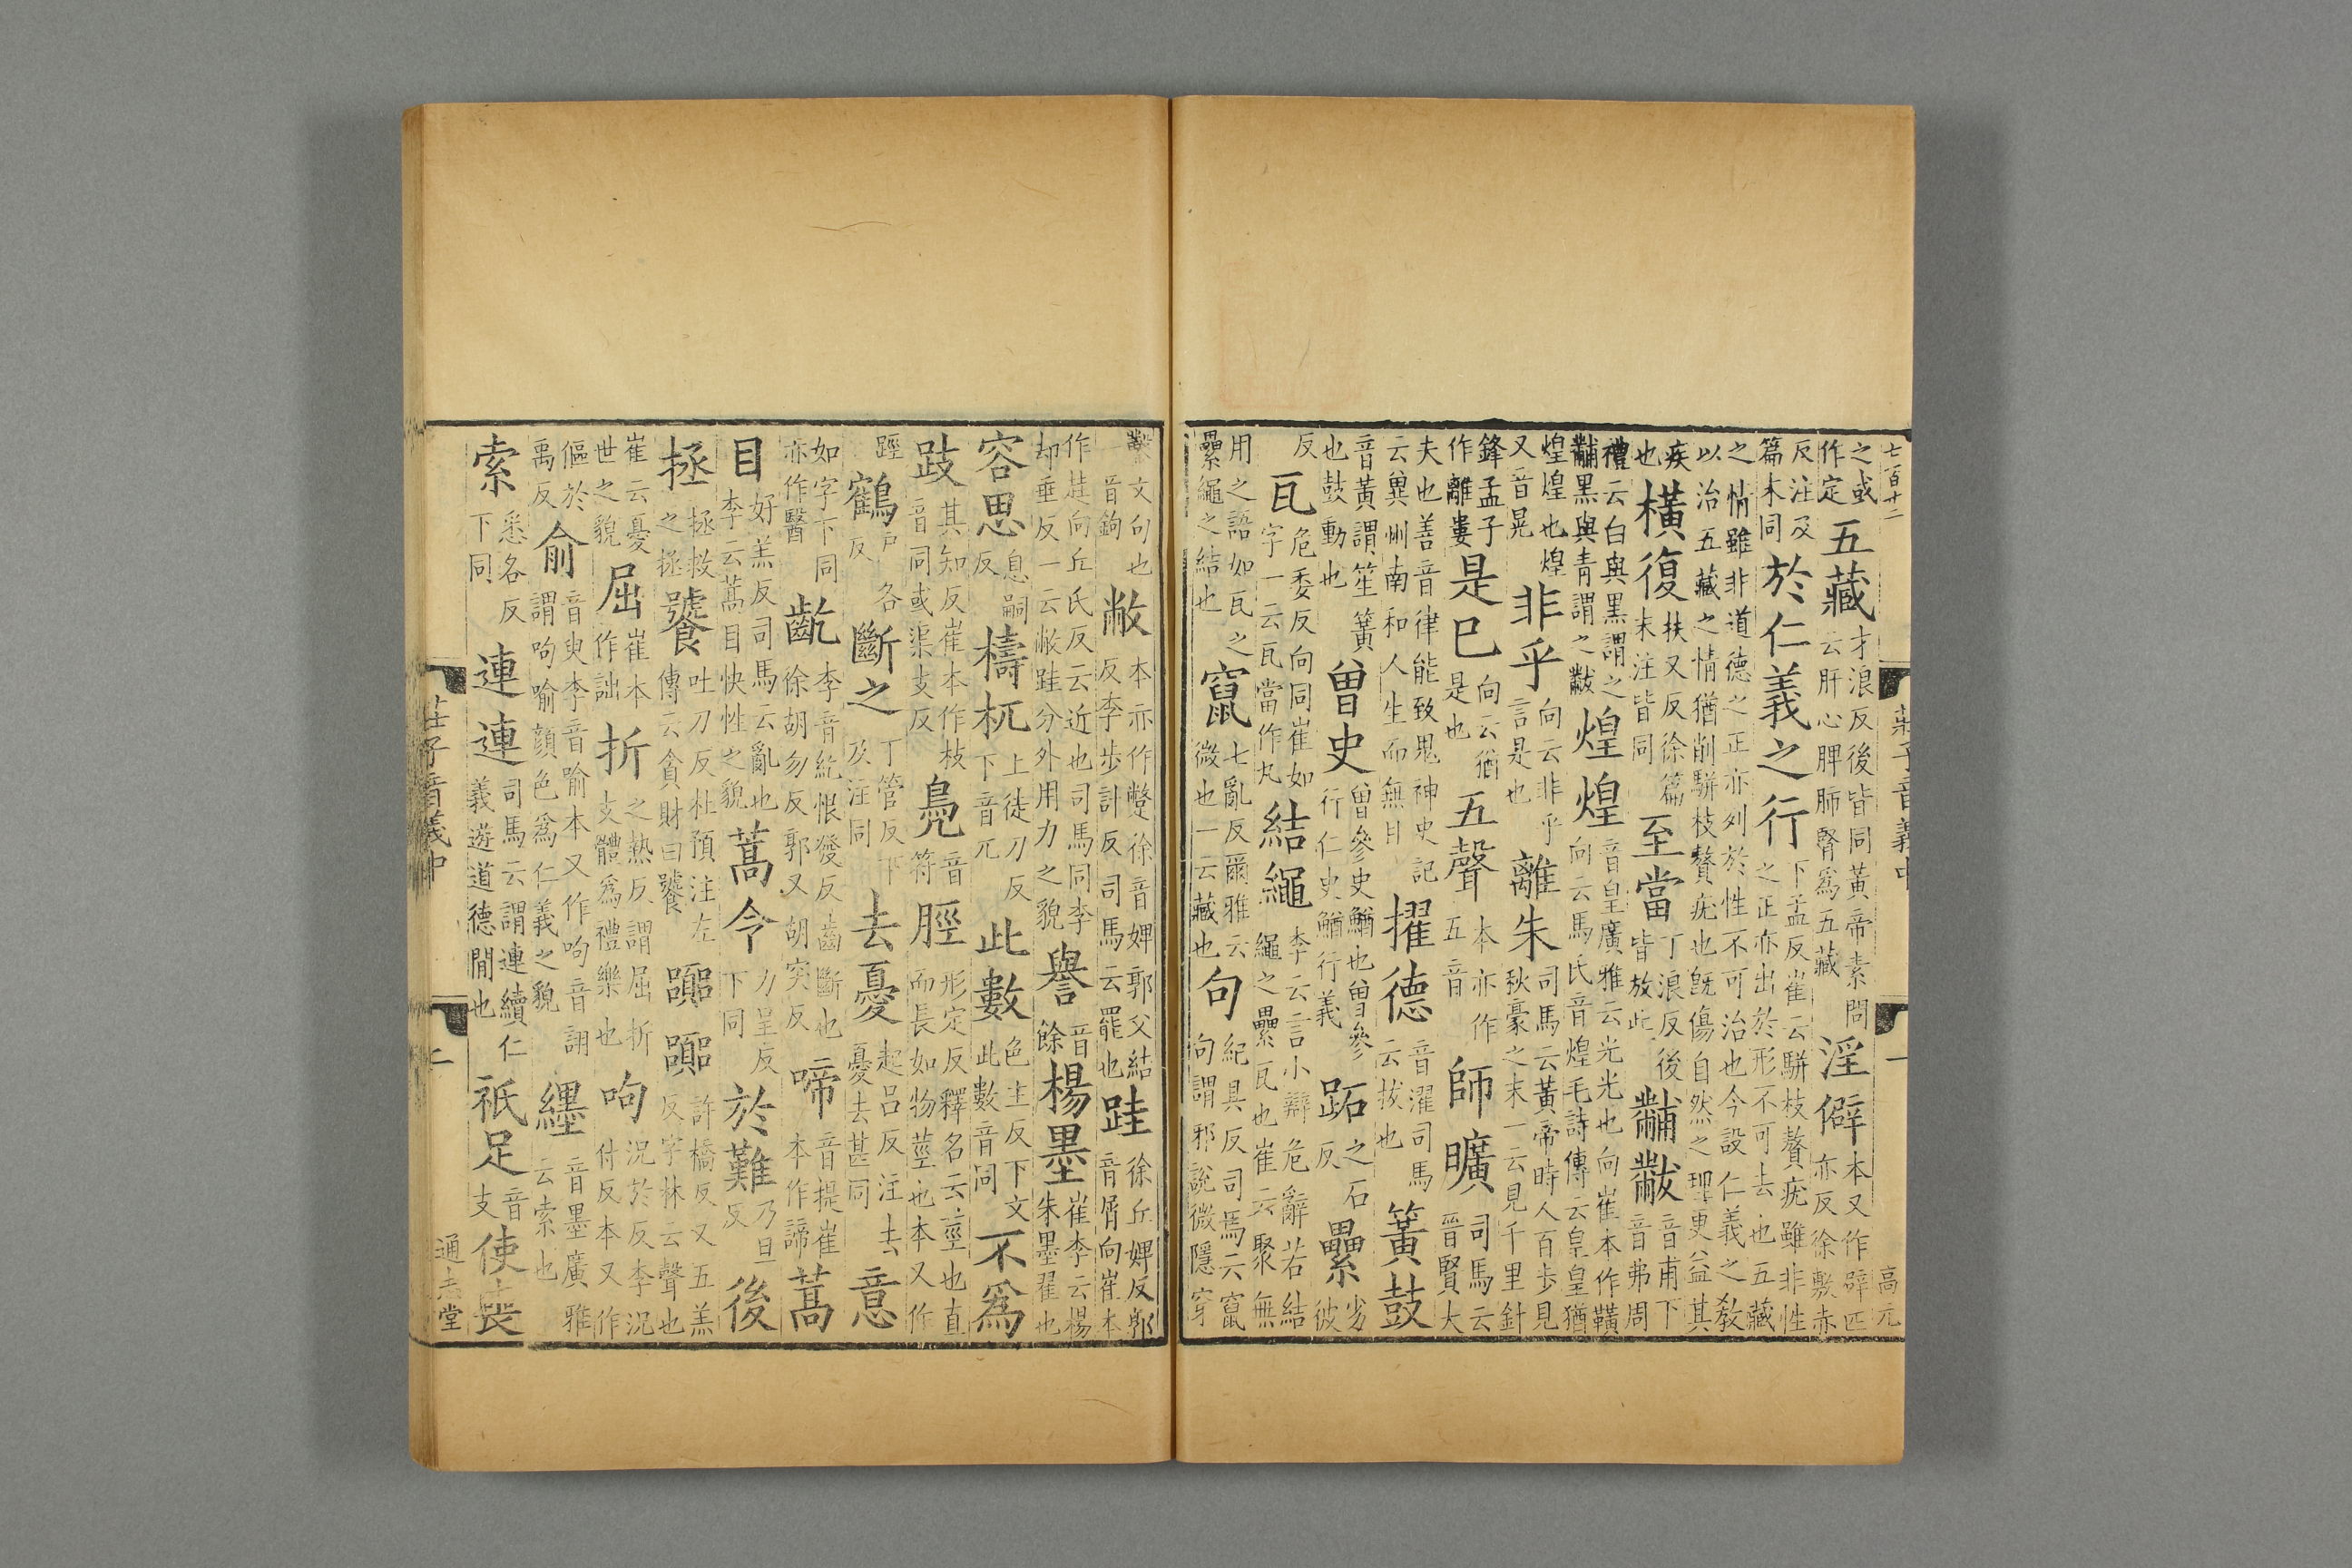 七百十二 莊子音義中 一 高元
之或作定 五藏 才浪反後皆同黃帝素問云肝心脾肺腎爲五藏 淫僻 本又作辟匹亦反徐敷赤
反注及篇末同 於仁義之行 下孟反崔云駢枝贅疣雖非性之正亦出於形不可去也五藏
之情雖非道德之正亦列於性不可治也今設仁義之教以治五藏之情猶削駢枝贅疣也旣傷自然之理更益其
疾也 橫復 扶又反徐篇末注皆同 至當 丁浪反後皆放此 黼黻 音甫下音弗周
禮云白與黑謂之黼黑與青謂之黻 煌煌 音皇廣雅云光光也向崔本作䪄向云馬氏音煌毛詩傳云皇皇猶
煌煌也煌又音晃 非乎 向云非乎言是也 離朱 司馬云黃帝時人百步見秋豪之末一云見千里針
鋒孟子作離婁 是已 向云猶是也 五聲 本亦作五音 師曠 司馬云晉賢大
夫也善音律能致鬼神史記云兾州南和人生而無目 擢德 音濯司馬云拔也 簧鼓
音黃謂笙簧也鼓動也 曾史 曾參史鰌也曾參行仁史鰌行義 跖 之石反 纍 劣彼
反 瓦 危委反向同崔如字一云瓦當作丸 結繩 李云言小辯危辭若結繩之纍瓦也崔云聚無
用之語如瓦之纍繩之結也 竄 七亂反爾雅云微也一云藏也 句 紀具反司馬云竄句謂邪說微隱穿
鑿文句也一音鉤 敝 本亦作蹩徐音婢郭父結反李步計反司馬云罷也 跬 徐丘婢反郭音屑向崔本
作向丘氏反云近也司馬同李却垂反一云敝跬分外用力之貌 譽 音餘 楊墨 崔李云楊朱墨翟也
容思 息嗣反 檮杌 上徒刀反下音兀 此數 色主反下文此數音同 不爲
跂 其知反崔本作枝音同或渠支反 鳧 音符 脛 形定反釋名云莖也直而長如物莖也本又作
踁 鶴 戶各反 斷之 丁管反下及注同 去憂 起呂反注去憂去甚同 意
如字下同亦作醫 齕 李音紇恨發反齒斷也徐胡勿反郭又胡突反 啼 音提崔本作諦 蒿
目 好羔反司馬云亂也李云蒿目快性之貌 蒿令 力呈反下同 於難 乃旦反 後
拯 拯救之拯 饕 吐刀反杜預注左傳云貪財曰饕 嚻嚻 許橋反又五羔反字林云聲也
崔云憂世之貌 屈 崔本作詘 折 之熱反謂屈折支體爲禮樂也 呴 況於反李況付反本又作
傴於禹反 俞 音臾李音喻本又作呴音詡謂呴喻顏色爲仁義之貌 纆 音墨廣雅云索也
索 悉各反下同 連連 司馬云謂連續仁義遊道德間也 祇足 音支 使喪
莊子音義中 二 通志堂